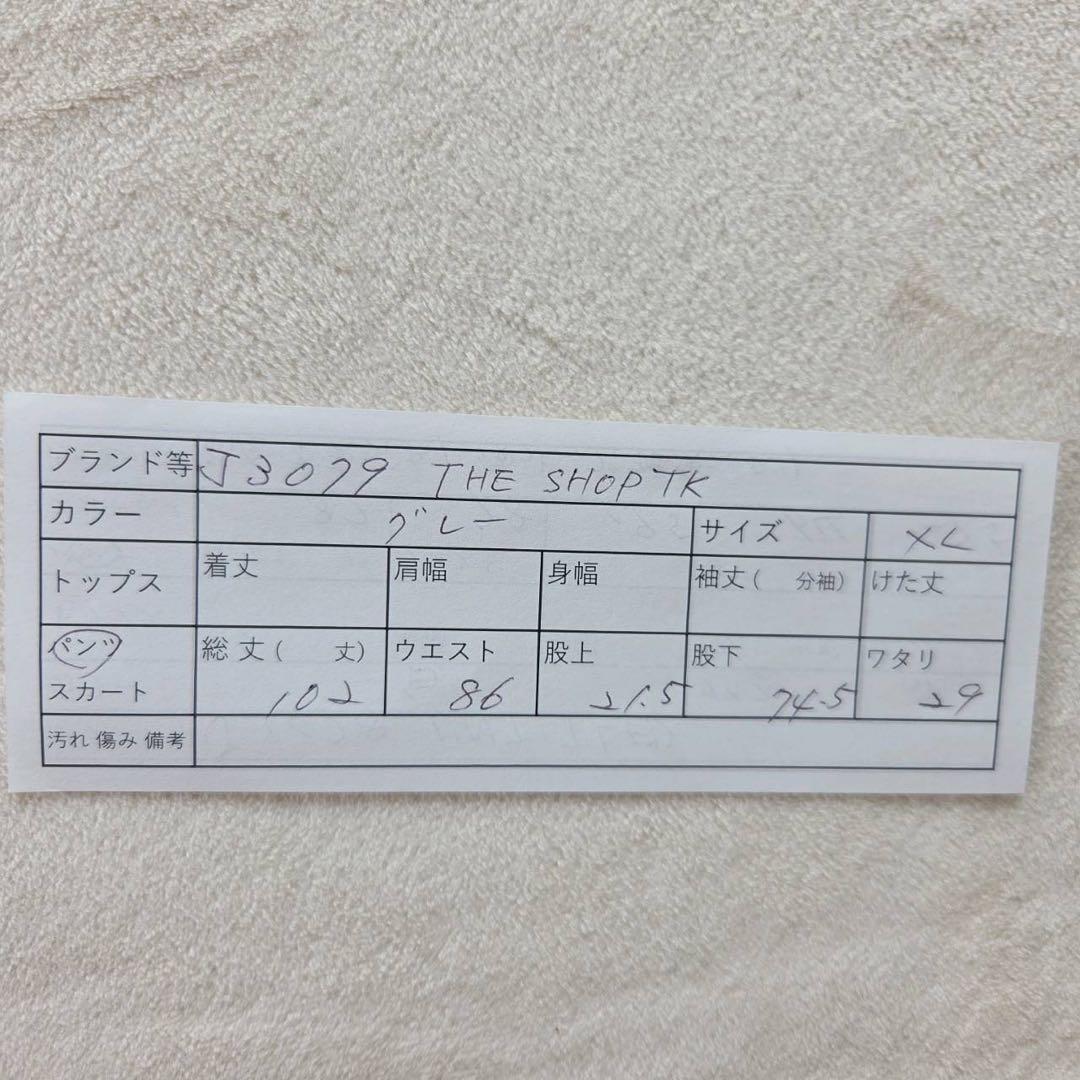 ブランド等 J3079 THE SHOP TK
カラー グレー サイズ XL
トップス 着丈 肩幅 身幅 袖丈( 分袖) けた丈
パンツ 総丈( 丈) ウエスト 股上 股下 ワタリ
スカート 102 86 21.5 74.5 29
汚れ 傷み 備考